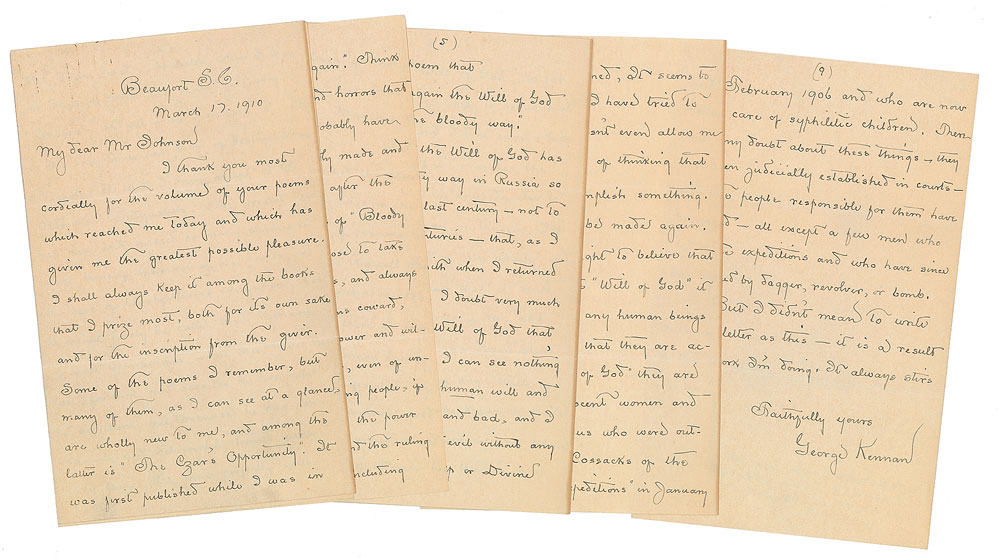 Beaufort S.C.
March 17. 1910
My dear Mr Johnson
I thank you most
cordially for the volume of your poems
which reached me today and which has
given me the greatest possible pleasure.
I shall always keep it among the books
that I prize most, both for its own sake
and for the inscription from the giver.
Some of the poems I remember, but
many of them, as I can see at a glance,
are wholly new to me, and among the
latter is "The Czar's Opportunity". It
was first published while I was in
gain". Think
nd horrors that
obably have
ly made and
after the
of "Bloody
ose to take
s, and always
us coward,
ower and wil-
, even of un-
ing people, if
the power
nd the ruling
including
(5)
poem that
again the Will of God
the bloody way".
the Will of God has
ty way in Russia so
last century — not to
nturies — that, as I
ith when I returned
I doubt very much
Will of God that
I can see nothing
human will and
and bad, and I
evil without any
p or Divine
ned, It seems to
I have tried to
sn't even allow me
of thinking that
mplish something.
be made again.
ght to believe that
s "Will of God" it
any human beings
that they are ac-
of God" they are
ocent women and
us who were out-
Cossacks of the
peditions" in January
(9)
February 1906 and who are now
care of syphilitic children. There
ny doubt about these things — they
en judicially established in courts —
e people responsible for them have
d — all except a few men who
e expeditions and who have since
ed by dagger, revolver, or bomb.
But I didn't mean to write
letter as this — it is a result
ork I'm doing. It always stirs
Faithfully yours
George Kennan